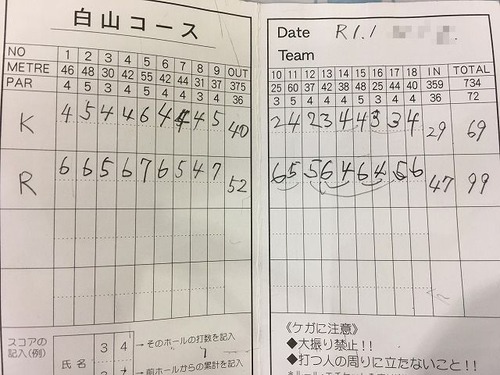 白山コース
NO 1 2 3 4 5 6 7 8 9 OUT
METRE 46 48 30 42 55 42 44 31 37 375
PAR 4 5 3 4 5 4 4 3 4 36
K 4 5 4 4 6 4 4 4 5 40
R 6 6 5 6 7 6 5 4 7 52
スコアの
記入(例)
氏名
3 4
→そのホールの打数を記入
→前ホールからの累計を記入
Date R1.1
Team
10 11 12 13 14 15 16 17 18 IN TOTAL
25 60 37 42 38 48 25 44 40 359 734
3 5 4 4 4 5 3 4 4 36 72
2 4 2 3 4 4 3 3 4 29 69
6 5 5 6 4 6 4 5 6 47 99
《ケガに注意》
◆大振り禁止!!
◆打つ人の周りに立たないこと!!